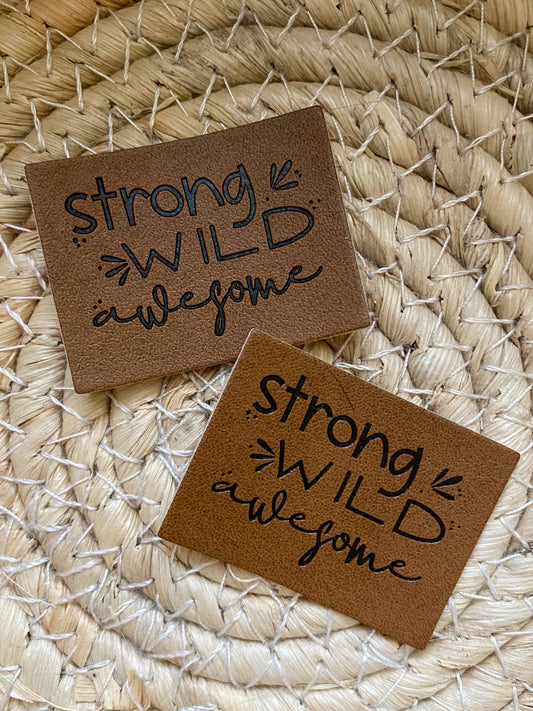 strong
WILD
awesome
strong
WILD
awesome